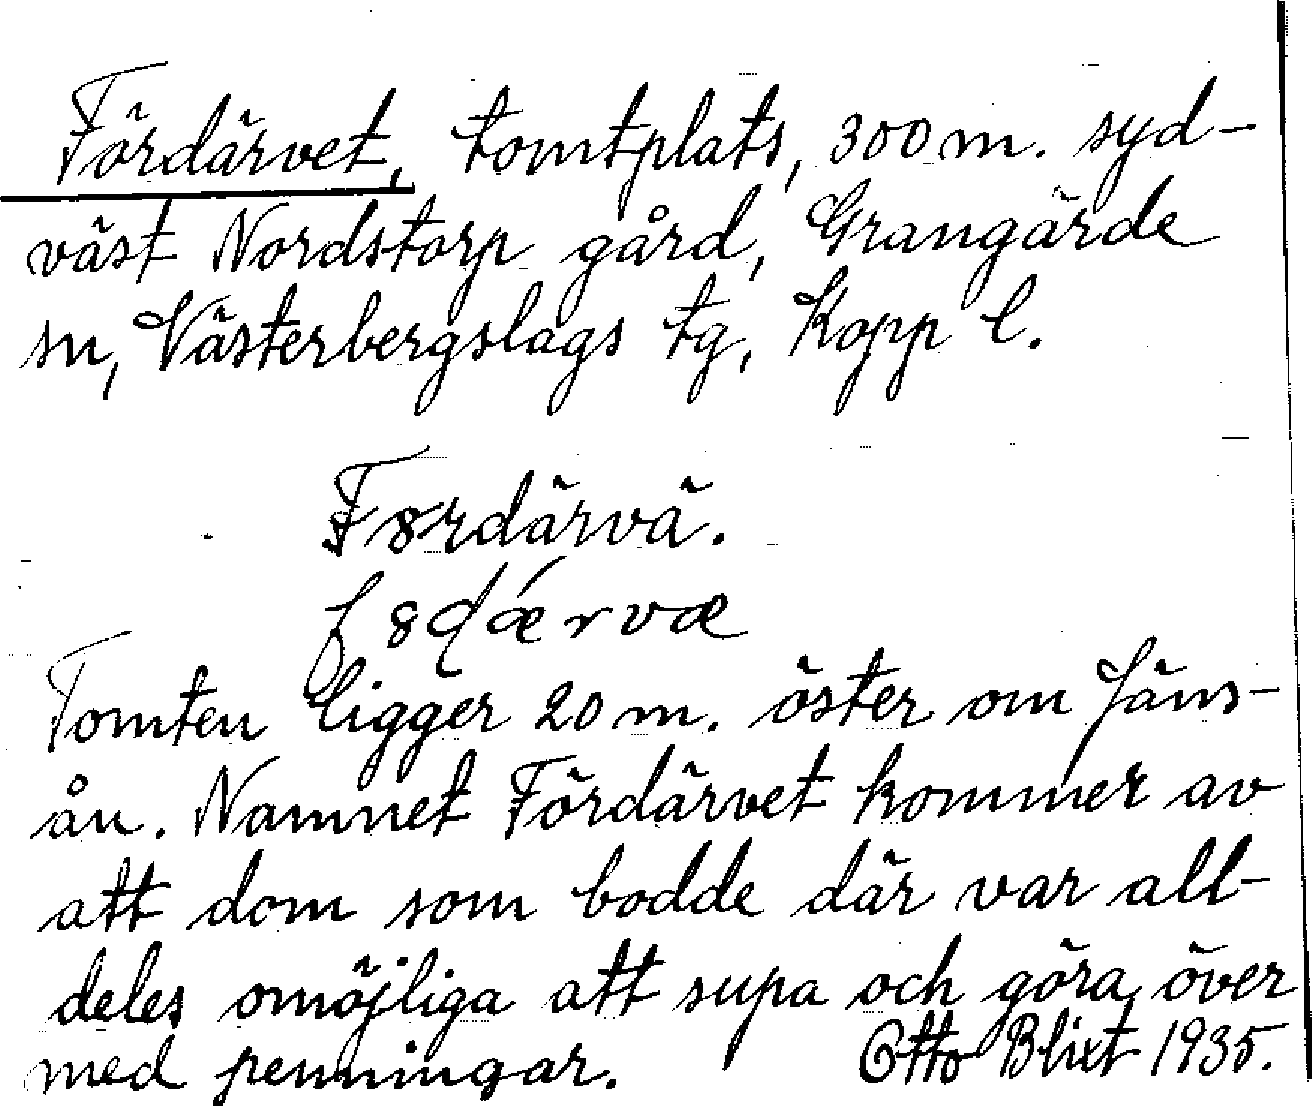 Fördärvet, tomtplats, 300 m. syd-
väst Nordstorp gård, Grangärde
sn, Västerbergslags tg, Kopp l.
F8rdärvä.
f8dǽrvæ
Tomten ligger 20 m. öster om Jäns-
ån. Namnet Fördärvet kommer av
att dom som bodde där var all-
deles omöjliga att supa och göra över
med penningar. Otto Blixt 1935.